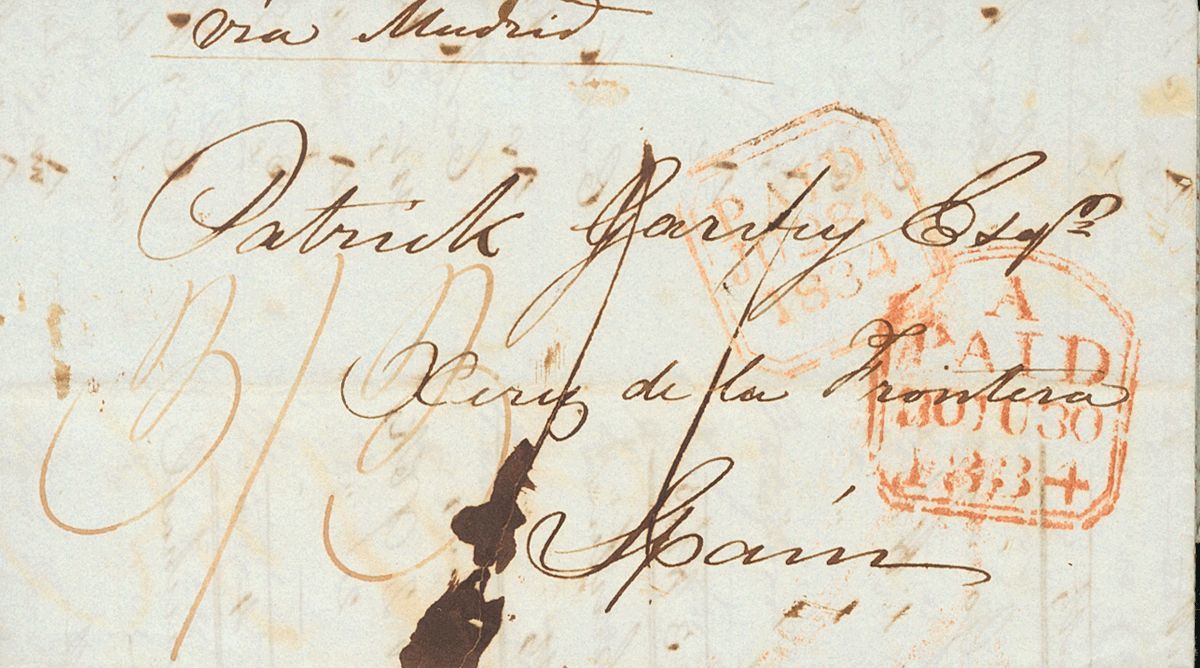 via Madrid
Patrick Garvey Esqre
Xerez de la Frontera
Spain
PAID
1834
A
PAID
30 JU 30
1834